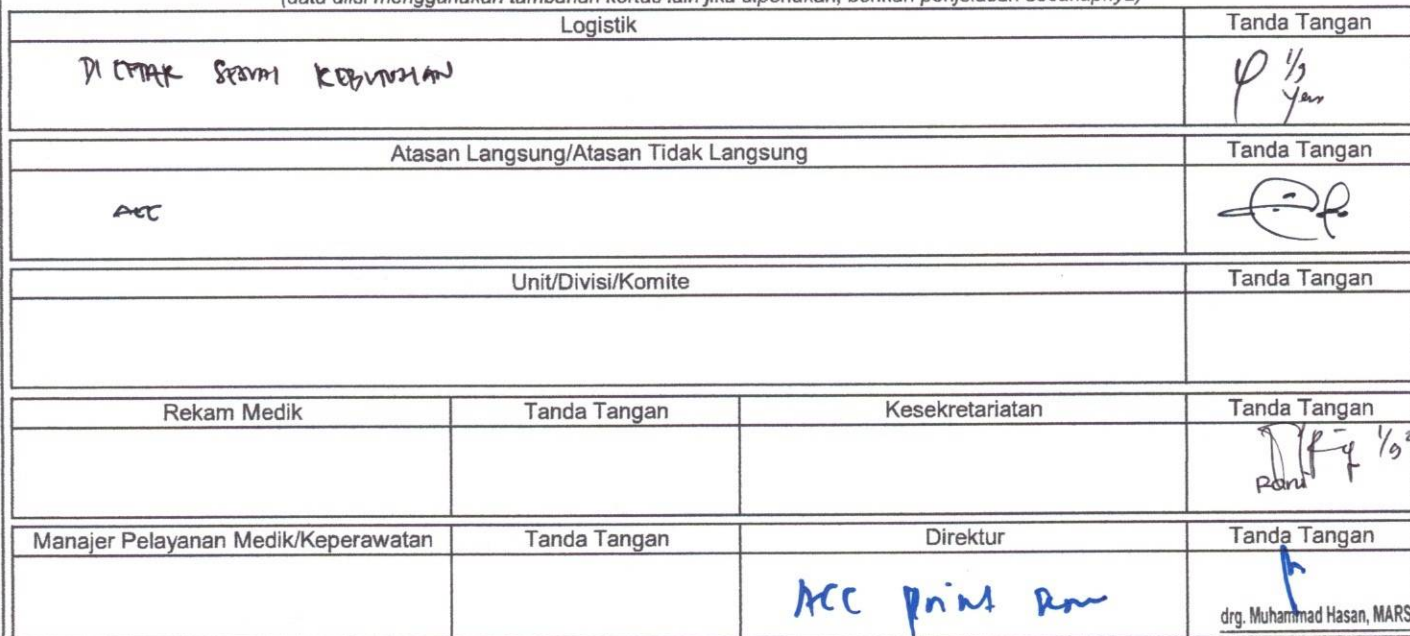 (data diisi menggunakan tambahan kertas lain jika diperlukan, berikan penjelasan secukupnya)
Logistik Tanda Tangan
DI CETAK SESUAI KEBUTUHAN
1/9
Yeni
Atasan Langsung/Atasan Tidak Langsung Tanda Tangan
ACC
Unit/Divisi/Komite Tanda Tangan
Rekam Medik Tanda Tangan Kesekretariatan Tanda Tangan
1/9
Rani
Manajer Pelayanan Medik/Keperawatan Tanda Tangan Direktur Tanda Tangan
ACC print
drg. Muhammad Hasan, MARS